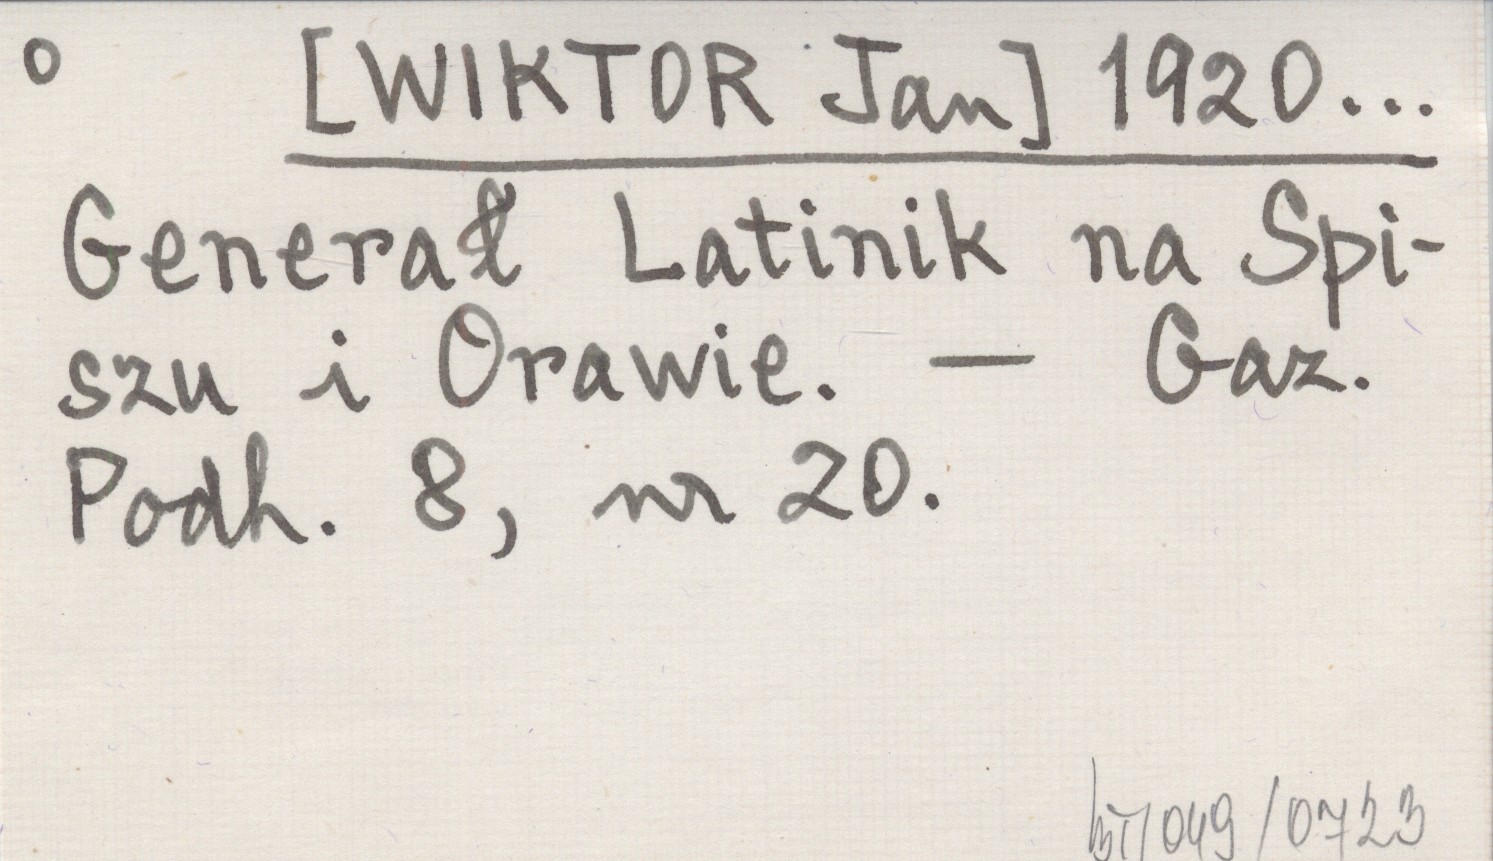 o [WIKTOR Jan] 1920...
Generał Latinik na Spi-
szu i Orawie. — Gaz.
Podh. 8, nr 20.
/049/0723